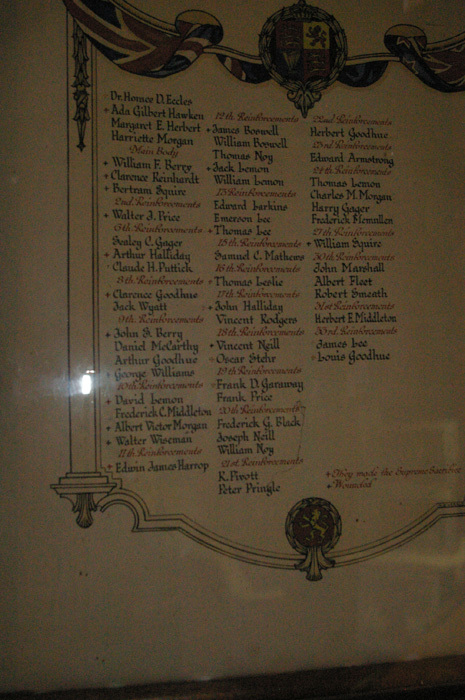 Dr. Horace D. Eccles
+ Ada Gilbert Hawken
Margaret E. Herbert
Harriette Morgan
Main Body
+ William F. Berry
+ Clarence Reinhardt
+ Bertram Squire
2nd Reinforcements
+ Walter J. Price
6th Reinforcements
Sealey C. Gager
+ Arthur Halliday
Claude H. Puttick
8th Reinforcements
+ Clarence Goodhue
Jack Wyatt
9th Reinforcements
+ John S. Berry
Daniel McCarthy
Arthur Goodhue
+ George Williams
10th Reinforcements
+ David Lemon
Frederick C. Middleton
+ Albert Victor Morgan
+ Walter Wiseman
11th Reinforcements
+ Edwin James Harrop
12th Reinforcements
+ James Boswell
William Boswell
Thomas Noy
+ Jack Lemon
William Lemon
13th Reinforcements
Edward Larkins
Emerson Lee
+ Thomas Lee
15th Reinforcements
Samuel C. Mathews
16th Reinforcements
+ Thomas Leslie
17th Reinforcements
+ John Halliday
Vincent Rodgers
18th Reinforcements
+ Vincent Neill
+ Oscar Stehr
19th Reinforcements
+ Frank D. Garaway
Frank Price
20th Reinforcements
Frederick G. Black
Joseph Neill
William Noy
21st Reinforcements
K. Pivott
Peter Pringle
22nd Reinforcements
Herbert Goodhue
23rd Reinforcements
Edward Armstrong
24th Reinforcements
Thomas Lemon
Charles M. Morgan
Harry Gager
Frederick Flemullen
27th Reinforcements
+ William Squire
30th Reinforcements
John Marshall
Albert Fleet
Robert Smeath
31st Reinforcements
Herbert E. Middleton
33rd Reinforcements
James Lee
+ Louis Goodhue
+ They made the Supreme Sacrifice
+ Wounded